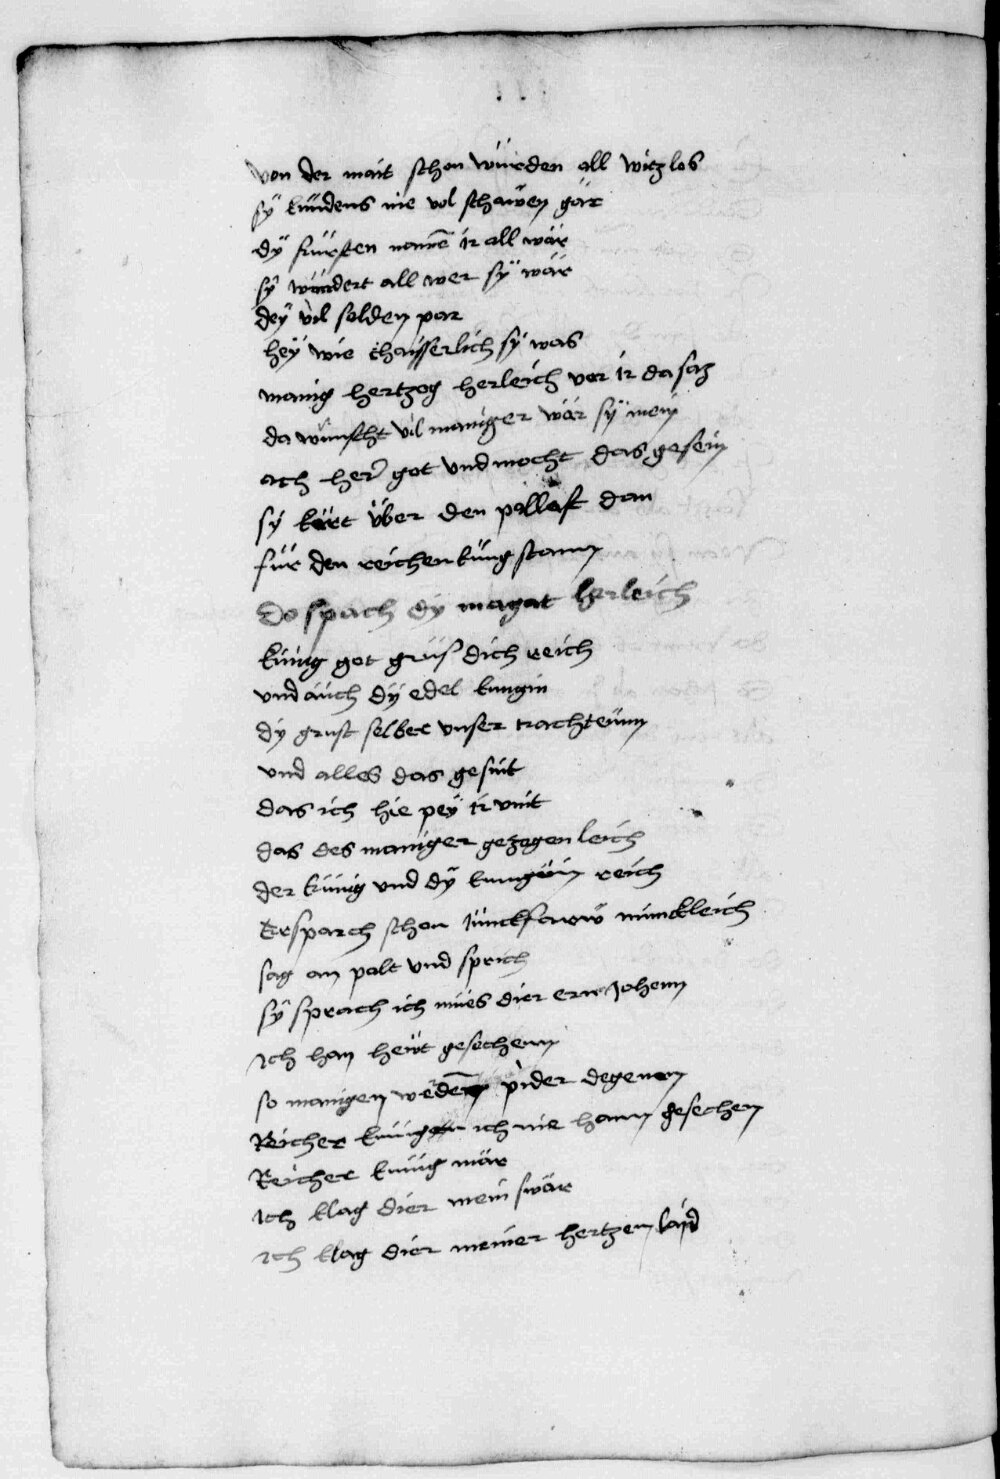 von der mait schon wurden all witzlos
sÿ kundens nie vol schawen gar
dÿ fursten namē ir all war
sÿ wundert all wer sÿ wär
deÿ vil selden par
heÿ wie chaisserlich sy was
manig hertzog herleich vor ir da saz
da wunscht vil maniger wär sÿ mein
ach her got vnd mocht das gesein
sy kert über den pallast dan
für den reichen küng stann
do spach dÿ magat herleich
künig got grüs dich reich
vnd auch dÿ edel kungin
dÿ grust selber vnser trachteinn
vnd alles das gesint
das ich hie peÿ ir vint
das des maniger gezogenleich
der künig vnd dÿ kungin reich
Er sparch schon junckfraw minckleich
sag an palt vnd sprich
sÿ sprach ich mües dier
Ich han heüt gesechenn
so manigen pider degenen
Reicher ich nie hann gesechen
Reicher künig mär
Ich klag dier mein swär
ich klag dier meiner hertzen laid